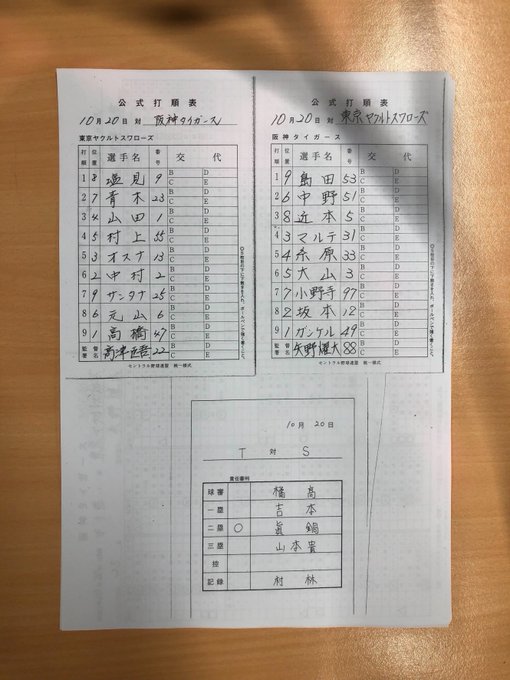 公式打順表
10月20日 対 阪神タイガース
東京ヤクルトスワローズ
打順 位置 選手名 番号 交代
1 8 塩見 9 B D C E
2 7 青木 23 B D C E
3 4 山田 1 B D C E
4 5 村上 55 B D C E
5 3 オスナ 13 B D C E
6 2 中村 2 B D C E
7 9 サンタナ 25 B D C E
8 6 元山 6 B D C E
9 1 高橋 47 B D C E
監督署名 高津臣吾 22 B D C E
セントラル野球連盟 統一様式
公式打順表
10月20日 対 東京ヤクルトスワローズ
阪神タイガース
打順 位置 選手名 番号 交代
1 9 島田 53 B D C E
2 6 中野 51 B D C E
3 8 近本 5 B D C E
4 3 マルテ 31 B D C E
5 4 糸原 33 B D C E
6 5 大山 3 B D C E
7 7 小野寺 97 B D C E
8 2 坂本 12 B D C E
9 1 ガンケル 49 B D C E
監督署名 矢野燿大 88 B D C E
セントラル野球連盟 統一様式
10月20日
T 対 S
責任審判
球審 橘髙
一塁 吉本
二塁 ○ 眞鍋
三塁 山本貴
控
記録 村林